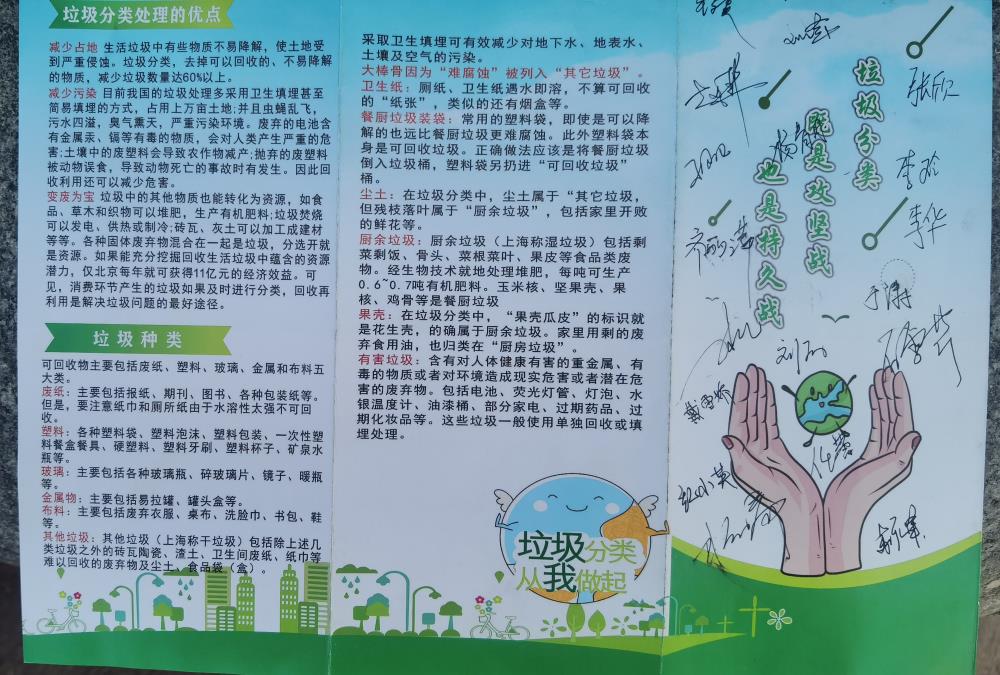 垃圾分类处理的优点
减少占地 生活垃圾中有些物质不易降解，使土地受
到严重侵蚀。垃圾分类，去掉可以回收的、不易降解
的物质，减少垃圾数量达60%以上。
减少污染 目前我国的垃圾处理多采用卫生填埋甚至
简易填埋的方式，占用上万亩土地；并且虫蝇乱飞，
污水四溢，臭气熏天，严重污染环境。废弃的电池含
有金属汞、镉等有毒的物质，会对人类产生严重的危
害；土壤中的废塑料会导致农作物减产；抛弃的废塑料
被动物误食，导致动物死亡的事故时有发生。因此回
收利用还可以减少危害。
变废为宝 垃圾中的其他物质也能转化为资源，如食
品、草木和织物可以堆肥，生产有机肥料；垃圾焚烧
可以发电、供热或制冷；砖瓦、灰土可以加工成建材
等等。各种固体废弃物混合在一起是垃圾，分选开就
是资源。如果能充分挖掘回收生活垃圾中蕴含的资源
潜力，仅北京每年就可获得11亿元的经济效益。可
见，消费环节产生的垃圾如果及时进行分类，回收再
利用是解决垃圾问题的最好途径。
垃圾种类
可回收物主要包括废纸、塑料、玻璃、金属和布料五
大类。
废纸：主要包括报纸、期刊、图书、各种包装纸等。
但是，要注意纸巾和厕所纸由于水溶性太强不可回
收。
塑料：各种塑料袋、塑料泡沫、塑料包装、一次性塑
料餐盒餐具、硬塑料、塑料牙刷、塑料杯子、矿泉水
瓶等。
玻璃：主要包括各种玻璃瓶、碎玻璃片、镜子、暖瓶
等。
金属物：主要包括易拉罐、罐头盒等。
布料：主要包括废弃衣服、桌布、洗脸巾、书包、鞋
等。
其他垃圾：其他垃圾（上海称干垃圾）包括除上述几
类垃圾之外的砖瓦陶瓷、渣土、卫生间废纸、纸巾等
难以回收的废弃物及尘土、食品袋（盒）。
采取卫生填埋可有效减少对地下水、地表水、
土壤及空气的污染。
大棒骨因为“难腐蚀”被列入“其它垃圾”。
卫生纸：厕纸、卫生纸遇水即溶，不算可回收
的“纸张”，类似的还有烟盒等。
餐厨垃圾装袋：常用的塑料袋，即使是可以降
解的也远比餐厨垃圾更难腐蚀。此外塑料袋本
身是可回收垃圾。正确做法应该是将餐厨垃圾
倒入垃圾桶，塑料袋另扔进“可回收垃圾”
桶。
尘土：在垃圾分类中，尘土属于“其它垃圾，
但残枝落叶属于“厨余垃圾”，包括家里开败
的鲜花等。
厨余垃圾：厨余垃圾（上海称湿垃圾）包括剩
菜剩饭、骨头、菜根菜叶、果皮等食品类废
物。经生物技术就地处理堆肥，每吨可生产
0.6~0.7吨有机肥料。玉米核、坚果壳、果
核、鸡骨等是餐厨垃圾
果壳：在垃圾分类中，“果壳瓜皮”的标识就
是花生壳，的确属于厨余垃圾。家里用剩的废
弃食用油，也归类在“厨房垃圾”。
有害垃圾：含有对人体健康有害的重金属、有
毒的物质或者对环境造成现实危害或者潜在危
害的废弃物。包括电池、荧光灯管、灯泡、水
银温度计、油漆桶、部分家电、过期药品、过
期化妆品等。这些垃圾一般使用单独回收或填
埋处理。
垃圾分类
从我做起
垃圾分类
既是攻坚战
也是持久战
张欣
李华